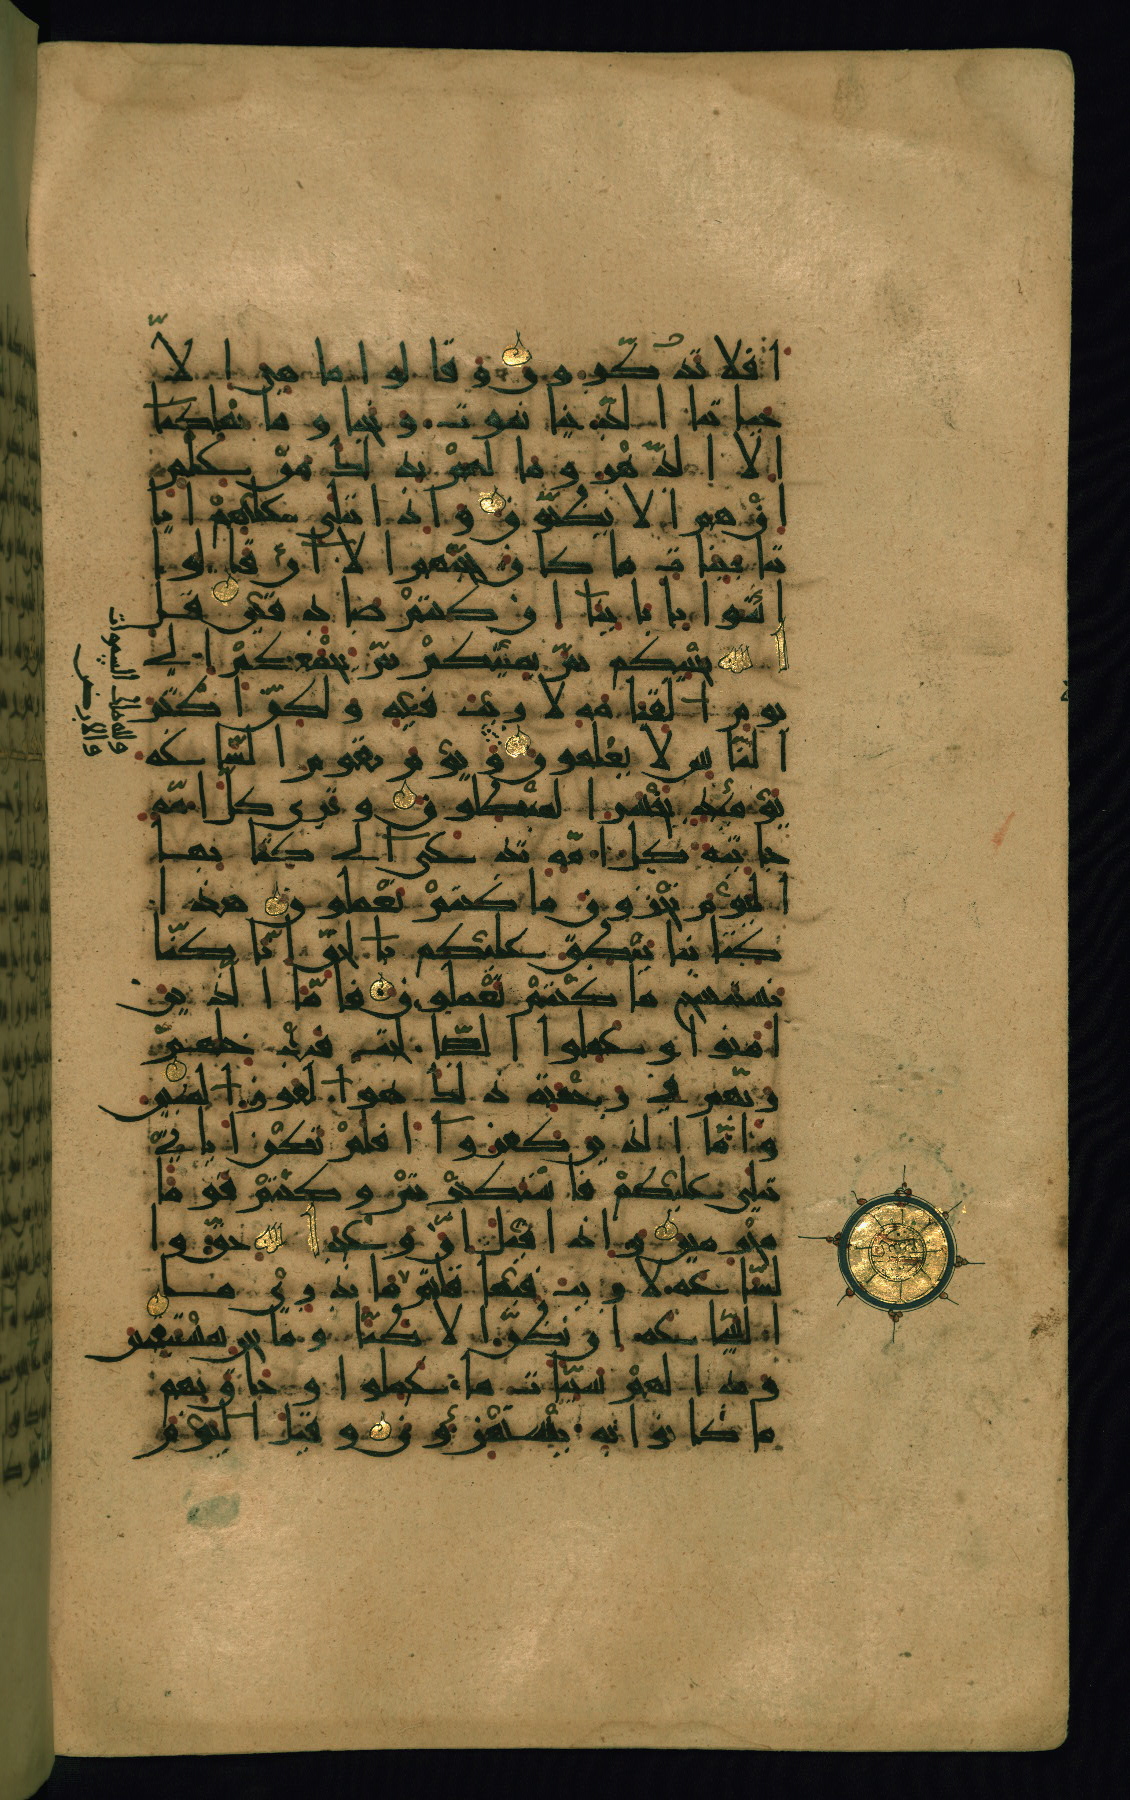 افلا تذكرون وقالوا ما هي الا
حياتنا الدنيا نموت ونحيا وما يهلكنا
الا الدهر وما لهم بذلك من علم
ان هم الا يظنون واذا تتلى عليهم ايا
تنا بينات ما كان حجتهم الا ان قالوا
ائتوا بابائنا ان كنتم صادقين قل
الله يحييكم ثم يميتكم ثم يجمعكم الى
يوم القيمة لا ريب فيه ولكن اكثر
الناس لا يعلمون ويوم تقوم الساعة
ولله ملك السموات
والارض
يومئذ يخسر المبطلون وترى كل امة
جاثية كل امة تدعى الى كتابها
اليوم تجزون ما كنتم تعملون هذا
كتابنا ينطق عليكم بالحق انا كنا
نستنسخ ما كنتم تعملون فاما الذين
امنوا وعملوا الصالحات فيدخلهم
ربهم في رحمته ذلك هو الفوز المبين
واما الذين كفروا افلم تكن اياتي
تتلى عليكم فاستكبرتم وكنتم قوما
مجرمين واذا قيل ان وعد الله حق وا
لساعة لا ريب فيها قلتم ما ندري ما
الساعة ان نظن الا ظنا وما نحن بمستيقنين
وبدا لهم سيئات ما عملوا وحاق بهم
ما كانوا به يستهزئون وقيل اليوم